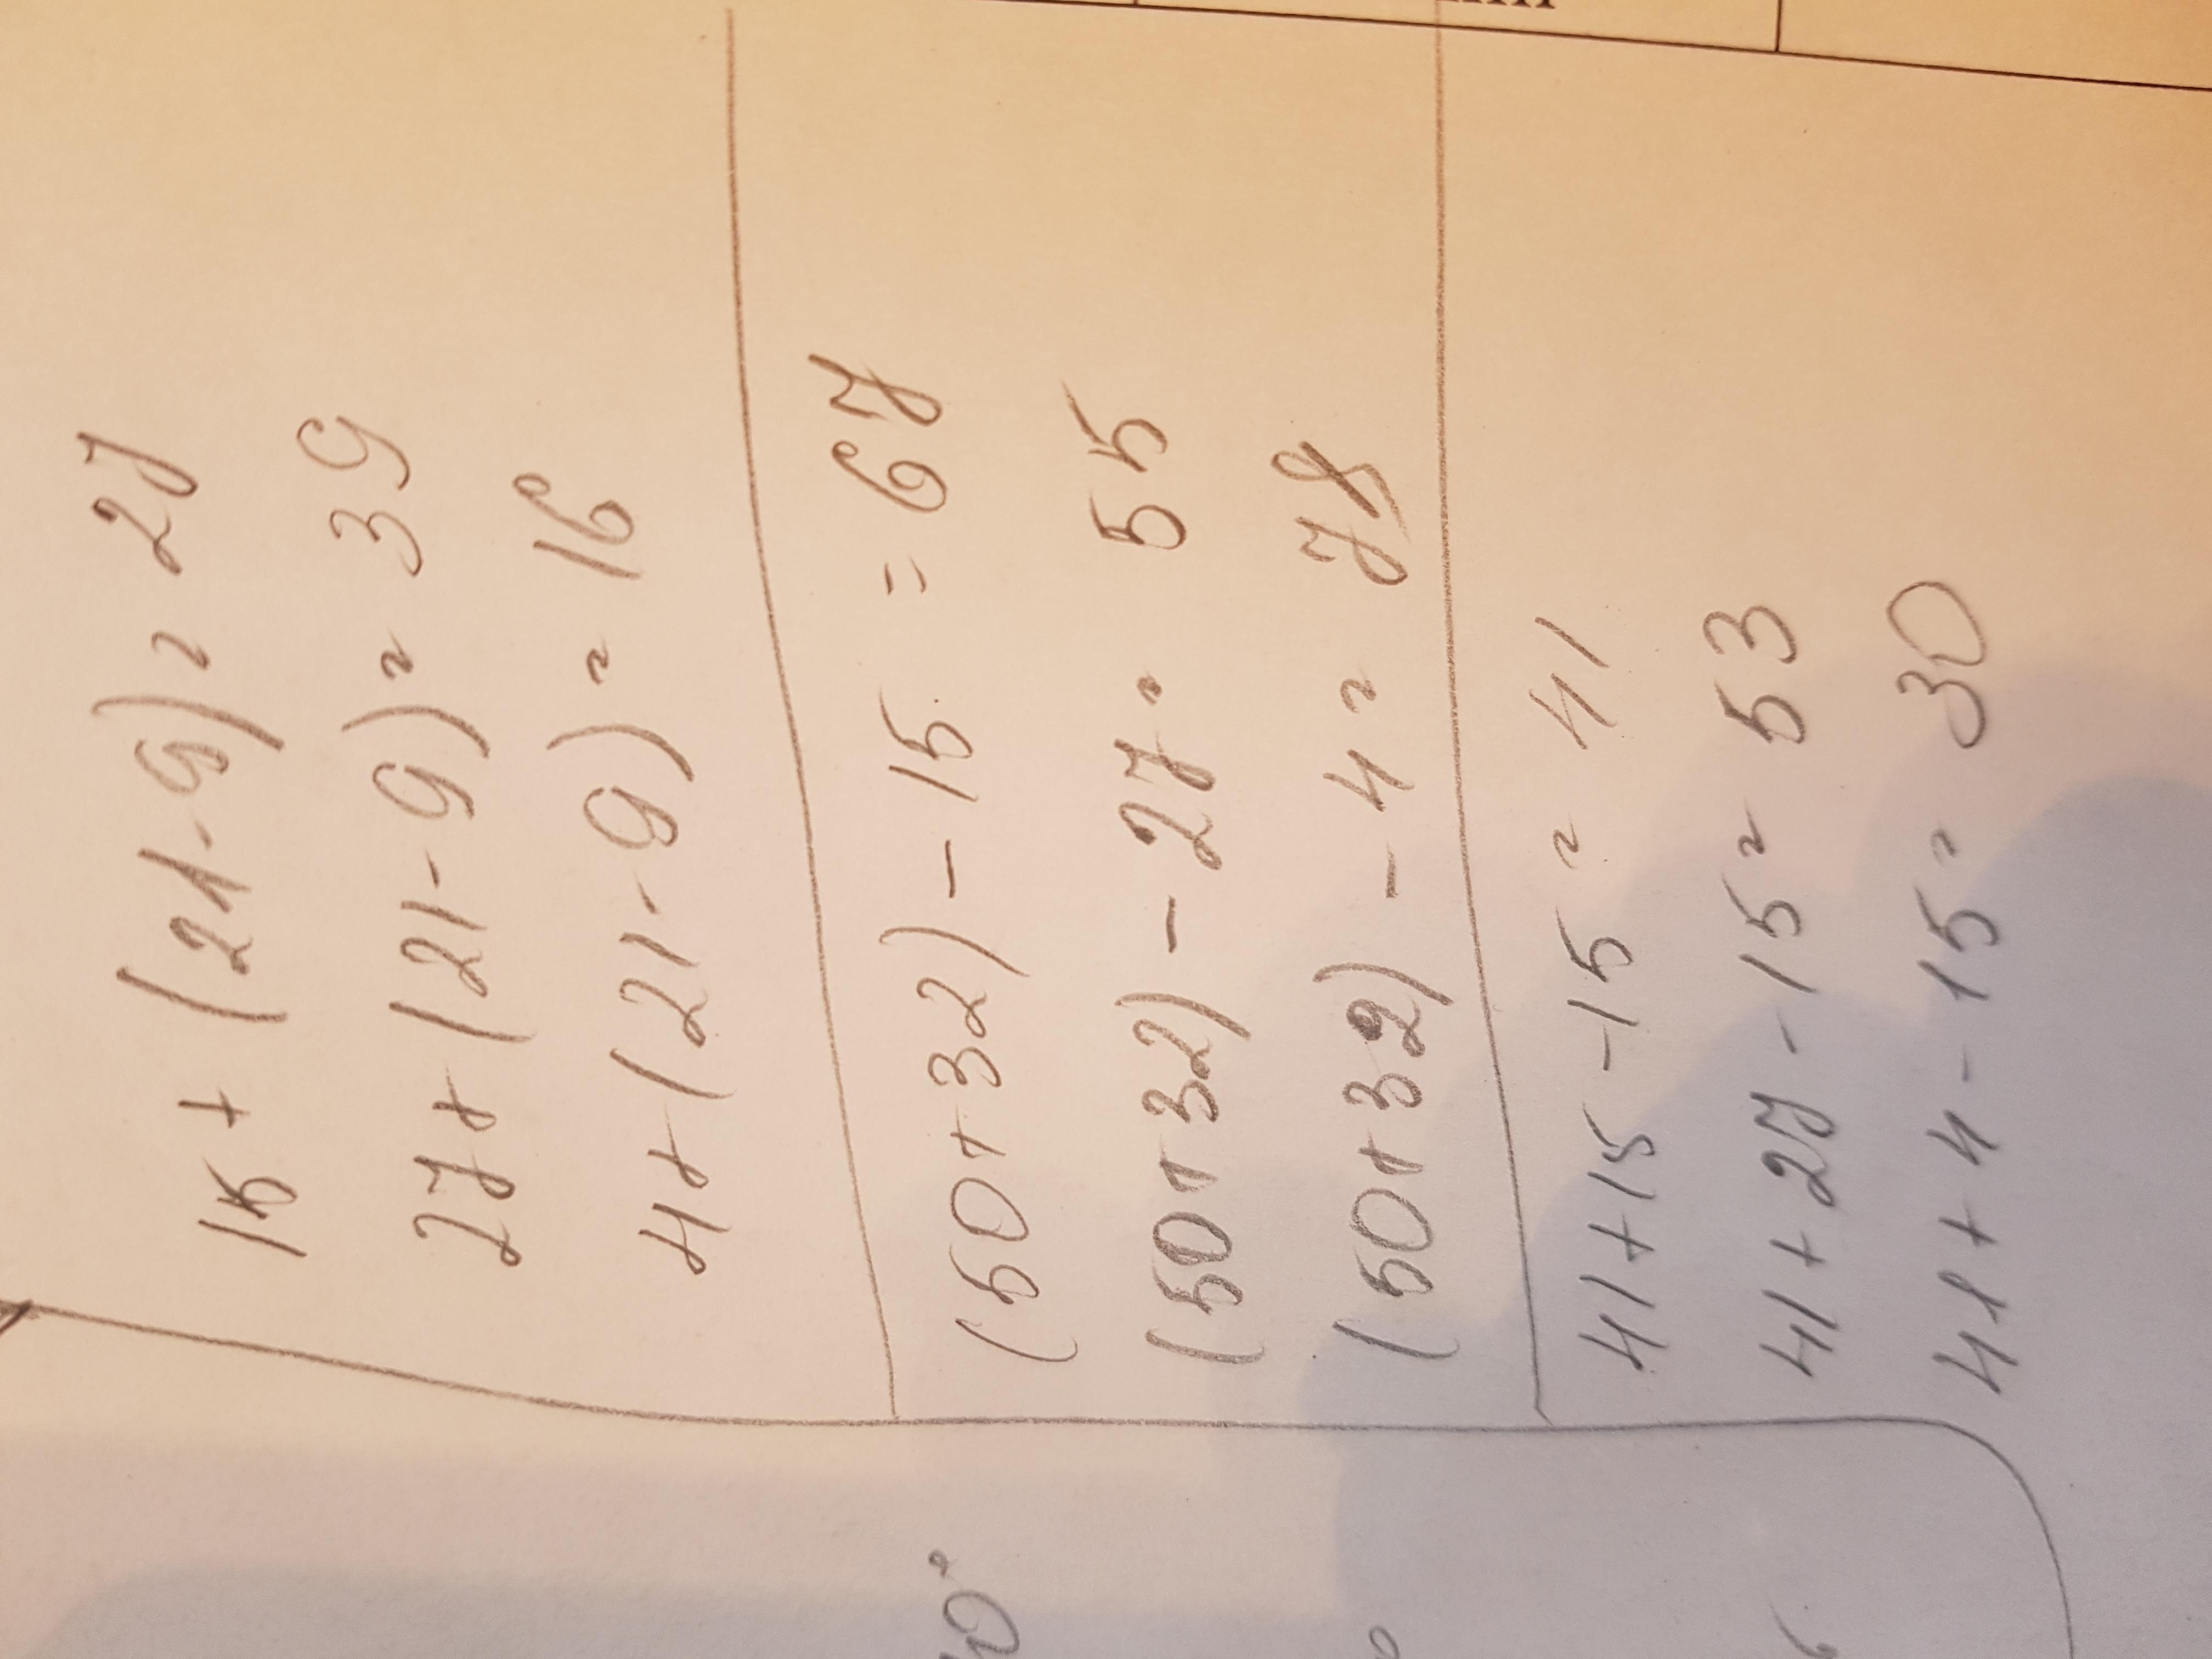 15 + (21-9) = 27
27 + (21-9) = 39
4 + (21-9) = 16
(50+32) - 15 = 67
(50+32) - 27 = 55
(50+32) - 4 = 78
41+15 - 15 = 41
41 + 27 - 15 = 53
41 + 4 - 15 = 30